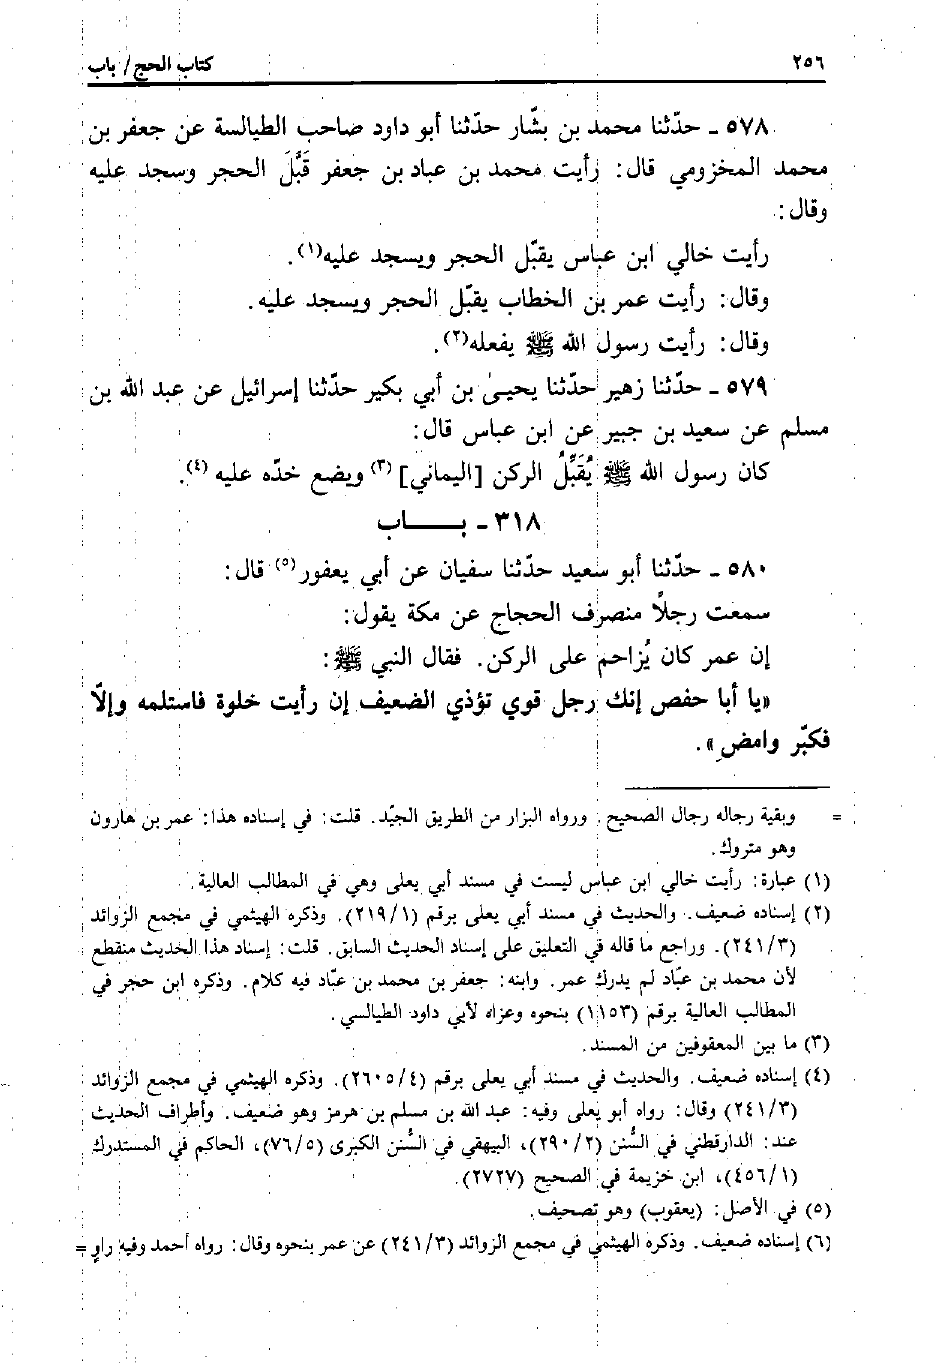 ٢٥٦ كتاب الحج / باب
٥٧٨ ـ حدّثنا محمد بن بشّار حدّثنا أبو داود صاحب الطيالسة عن جعفر بن
محمد المخزومي قال: رأيت محمد بن عباد بن جعفر قَبَّلَ الحجر وسجد عليه
وقال:
رأيت خالي ابن عباس يقبّل الحجر ويسجد عليه(١).
وقال: رأيت عمر بن الخطاب يقبّل الحجر ويسجد عليه.
وقال: رأيت رسول الله ﷺ يفعله(٢).
٥٧٩ ـ حدّثنا زهير حدّثنا يحيىٰ بن أبي بكير حدّثنا إسرائيل عن عبد الله بن
مسلم عن سعيد بن جبير عن ابن عباس قال:
كان رسول الله ﷺ يُقَبِّلُ الركن [اليماني](٣) ويضع خدّه عليه(٤).
٣١٨ ـ بـــاب
٥٨٠ ـ حدّثنا أبو سعيد حدّثنا سفيان عن أبي يعفور(٥) قال:
سمعت رجلاً منصرف الحجاج عن مكة يقول:
إن عمر كان يُزاحم على الركن. فقال النبي ﷺ:
«يا أبا حفص إنك رجل قوي تؤذي الضعيف إن رأيت خلوة فاستلمه وإلاّ
فكبّر وامضِ».
= وبقية رجاله رجال الصحيح. ورواه البزار من الطريق الجيّد. قلت: في إسناده هذا: عمر بن هارون
وهو متروك.
(١) عبارة: رأيت خالي ابن عباس ليست في مسند أبي يعلى وهي في المطالب العالية.
(٢) إسناده ضعيف. والحديث في مسند أبي يعلى برقم (٢١٩/١). وذكره الهيثمي في مجمع الزوائد
(٢٤١/٣). وراجع ما قاله في التعليق على إسناد الحديث السابق. قلت: إسناد هذا الحديث منقطع
لأن محمد بن عبّاد لم يدرك عمر. وابنه: جعفر بن محمد بن عبّاد فيه كلام. وذكره ابن حجر في
المطالب العالية برقم (١١٥٣) بنحوه وعزاه لأبي داود الطيالسي.
(٣) ما بين المعقوفين من المسند.
(٤) إسناده ضعيف. والحديث في مسند أبي يعلى برقم (٢٦٠٥/٤). وذكره الهيثمي في مجمع الزوائد
(٢٤١/٣) وقال: رواه أبو يعلى وفيه: عبد الله بن مسلم بن هرمز وهو ضعيف. وأطراف الحديث
عند: الدارقطني في السُّنن (٢٩٠/٢)، البيهقي في السُّنن الكبرى (٧٦/٥)، الحاكم في المستدرك
(٤٥٦/١)، ابن خزيمة في الصحيح (٢٧٢٧).
(٥) في الأصل: (يعقوب) وهو تصحيف.
(٦) إسناده ضعيف. وذكره الهيثمي في مجمع الزوائد (٢٤١/٣) عن عمر بنحوه وقال: رواه أحمد وفيه راوٍ =